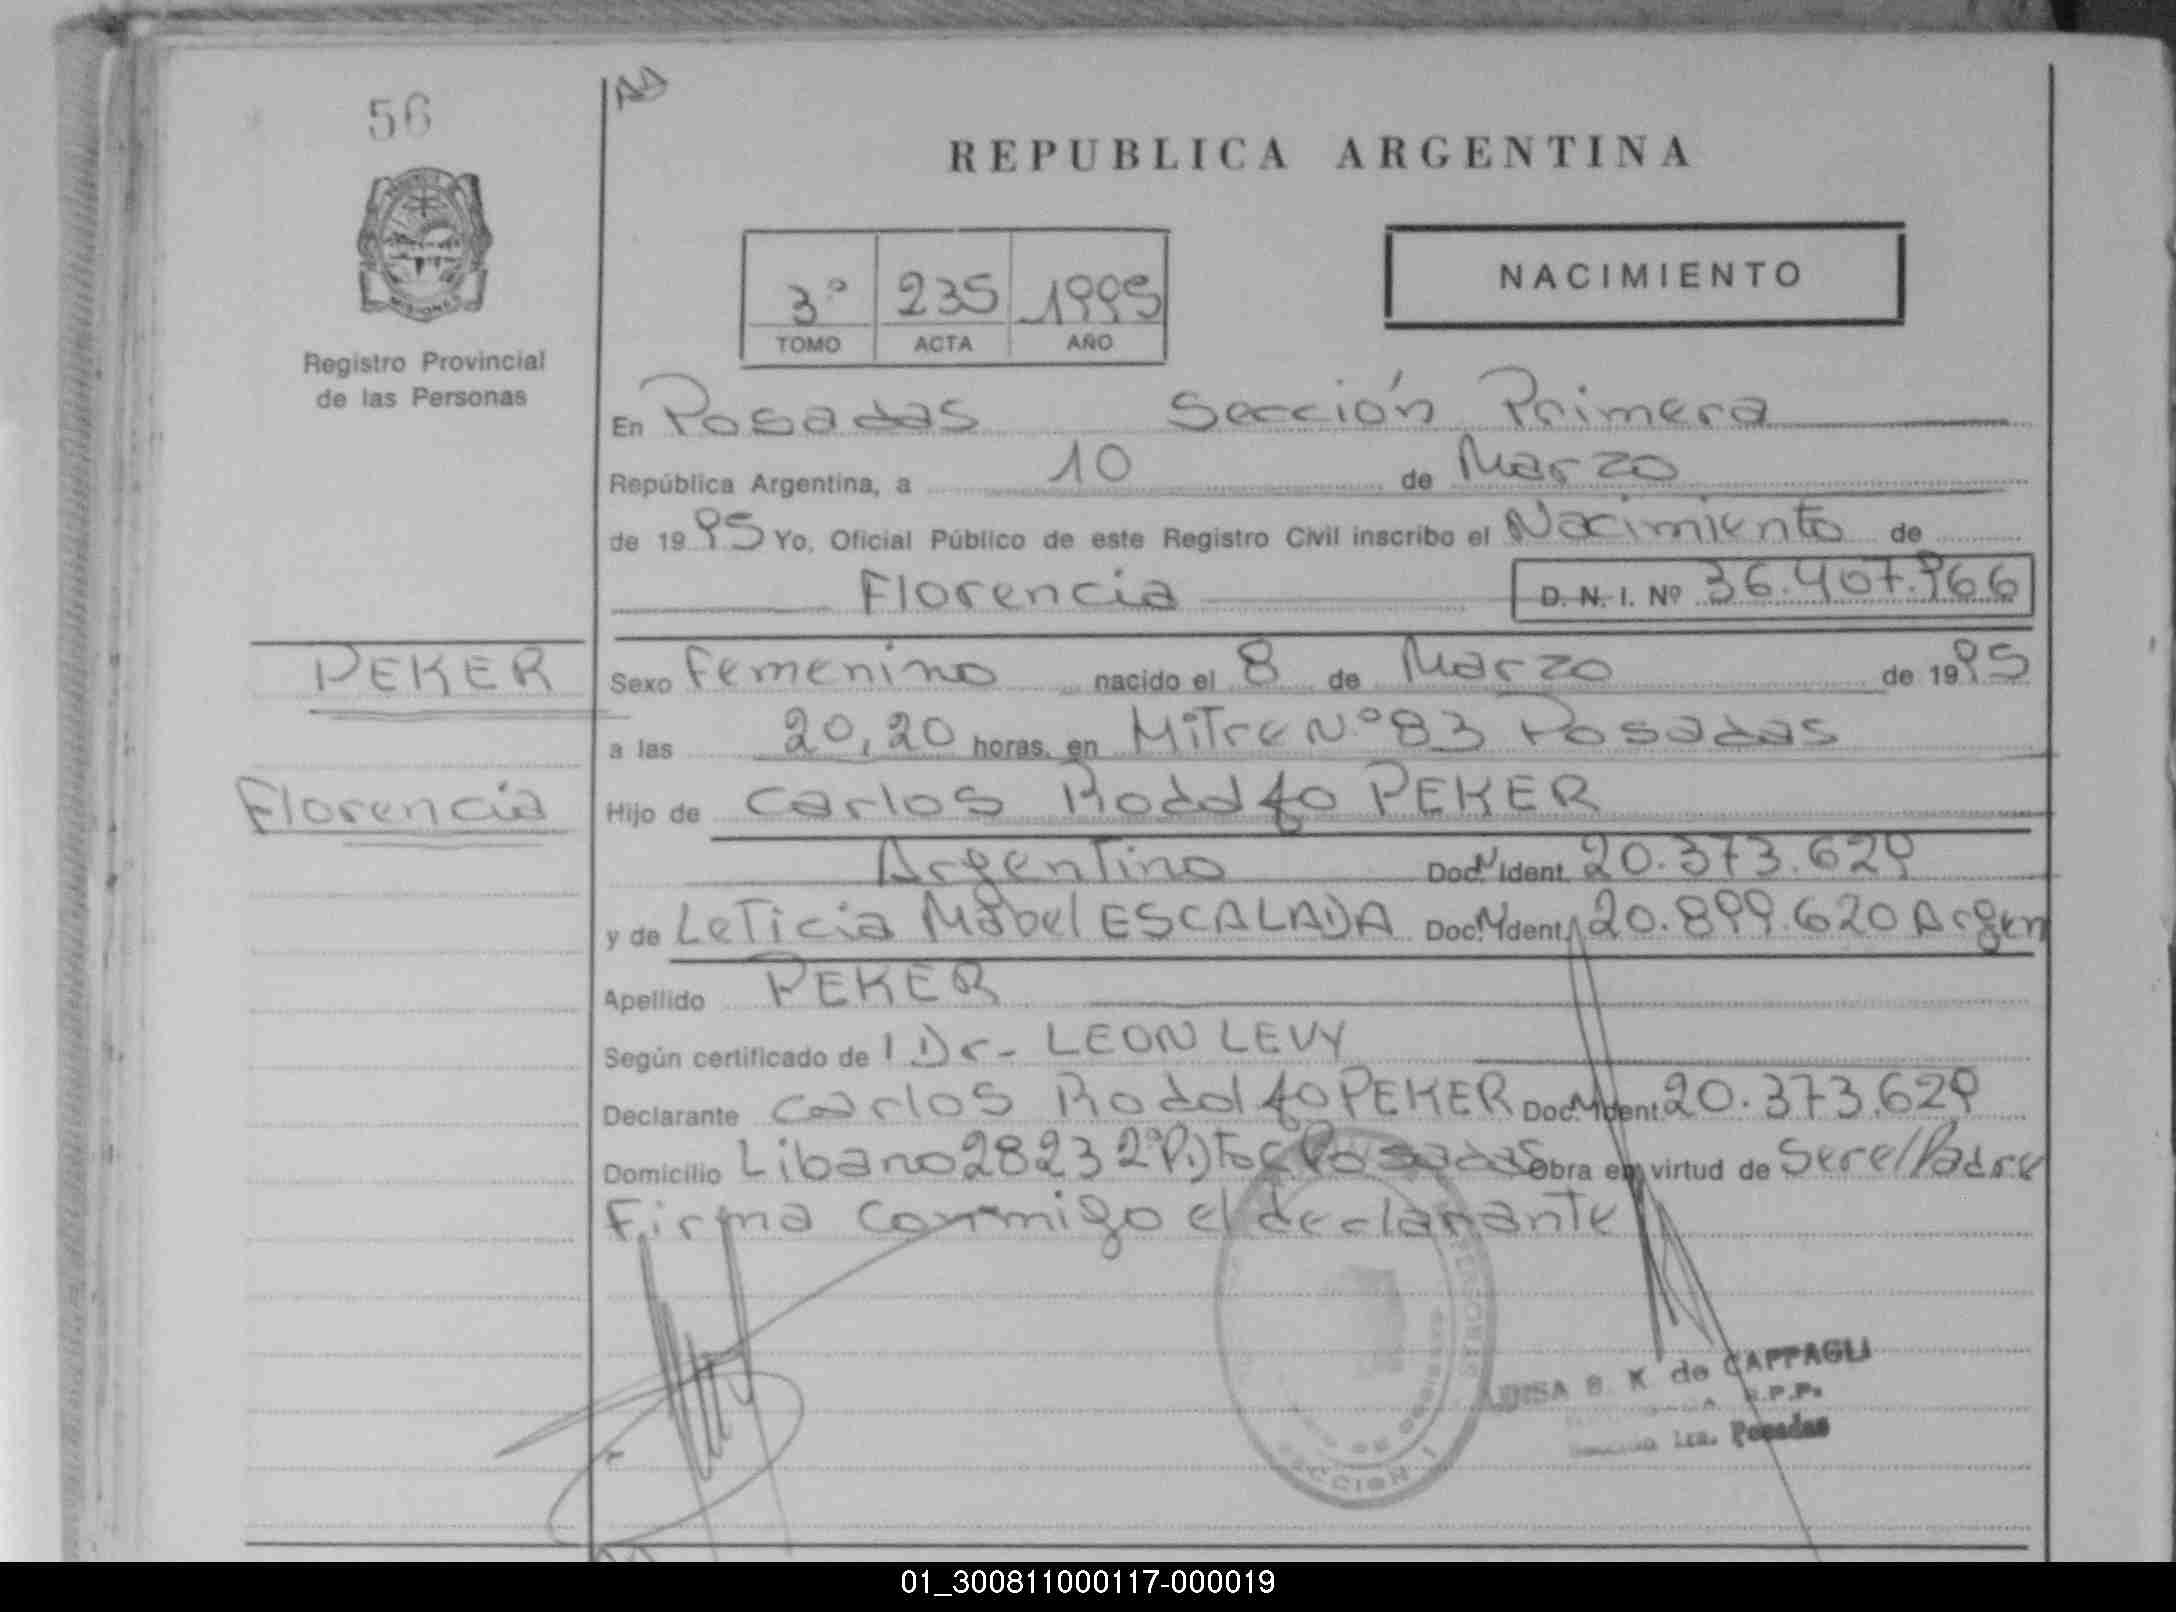 56
REPUBLICA ARGENTINA
3º 235 1995
TOMO ACTA AÑO
NACIMIENTO
Registro Provincial
de las Personas
En Posadas Sección Primera
República Argentina, a 10 de Marzo
de 1995 Yo, Oficial Público de este Registro Civil inscribo el Nacimiento de
Florencia D. N. I. Nº 36.407.966
PEKER
Florencia
Sexo Femenino nacido el 8 de Marzo de 1995
a las 20,20 horas, en Mitre Nº 83 Posadas
Hijo de Carlos Rodolfo PEKER
Argentino Doc. N Ident. 20.373.629
y de Leticia Mabel ESCALADA Doc. N Ident. 20.899.620 Argen
Apellido PEKER
Según certificado de l Dr. LEON LEVY
Declarante Carlos Rodolfo PEKER Doc. N Ident. 20.373.629
Domicilio Libano 2823 2º Posadas Obra en virtud de Ser el Padre
Firma conmigo el declarante
B. K de CAPPAGLI
R.P.P.
1ra. Posadas
SECCION 1
01_300811000117-000019